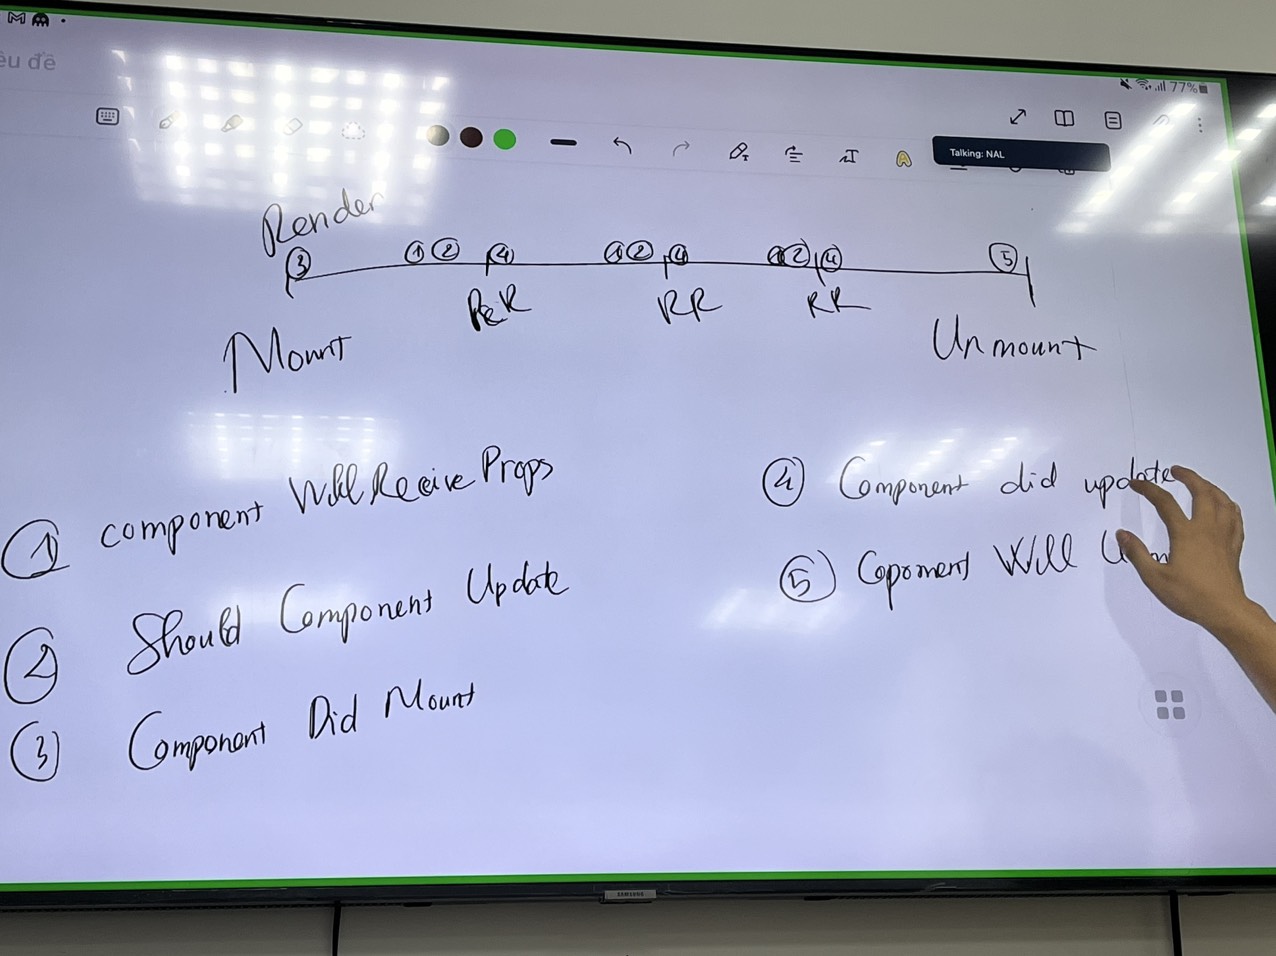 êu đề
77%
Talking: NAL
Render
3 1 2 4 1 2 4 1 2 4 5
ReR RR RR
Mount Unmount
1 component Will Recive Props
2 Should Component Update
3 Component Did Mount
4 Component did update
5 Coponent Will
SAMSUNG